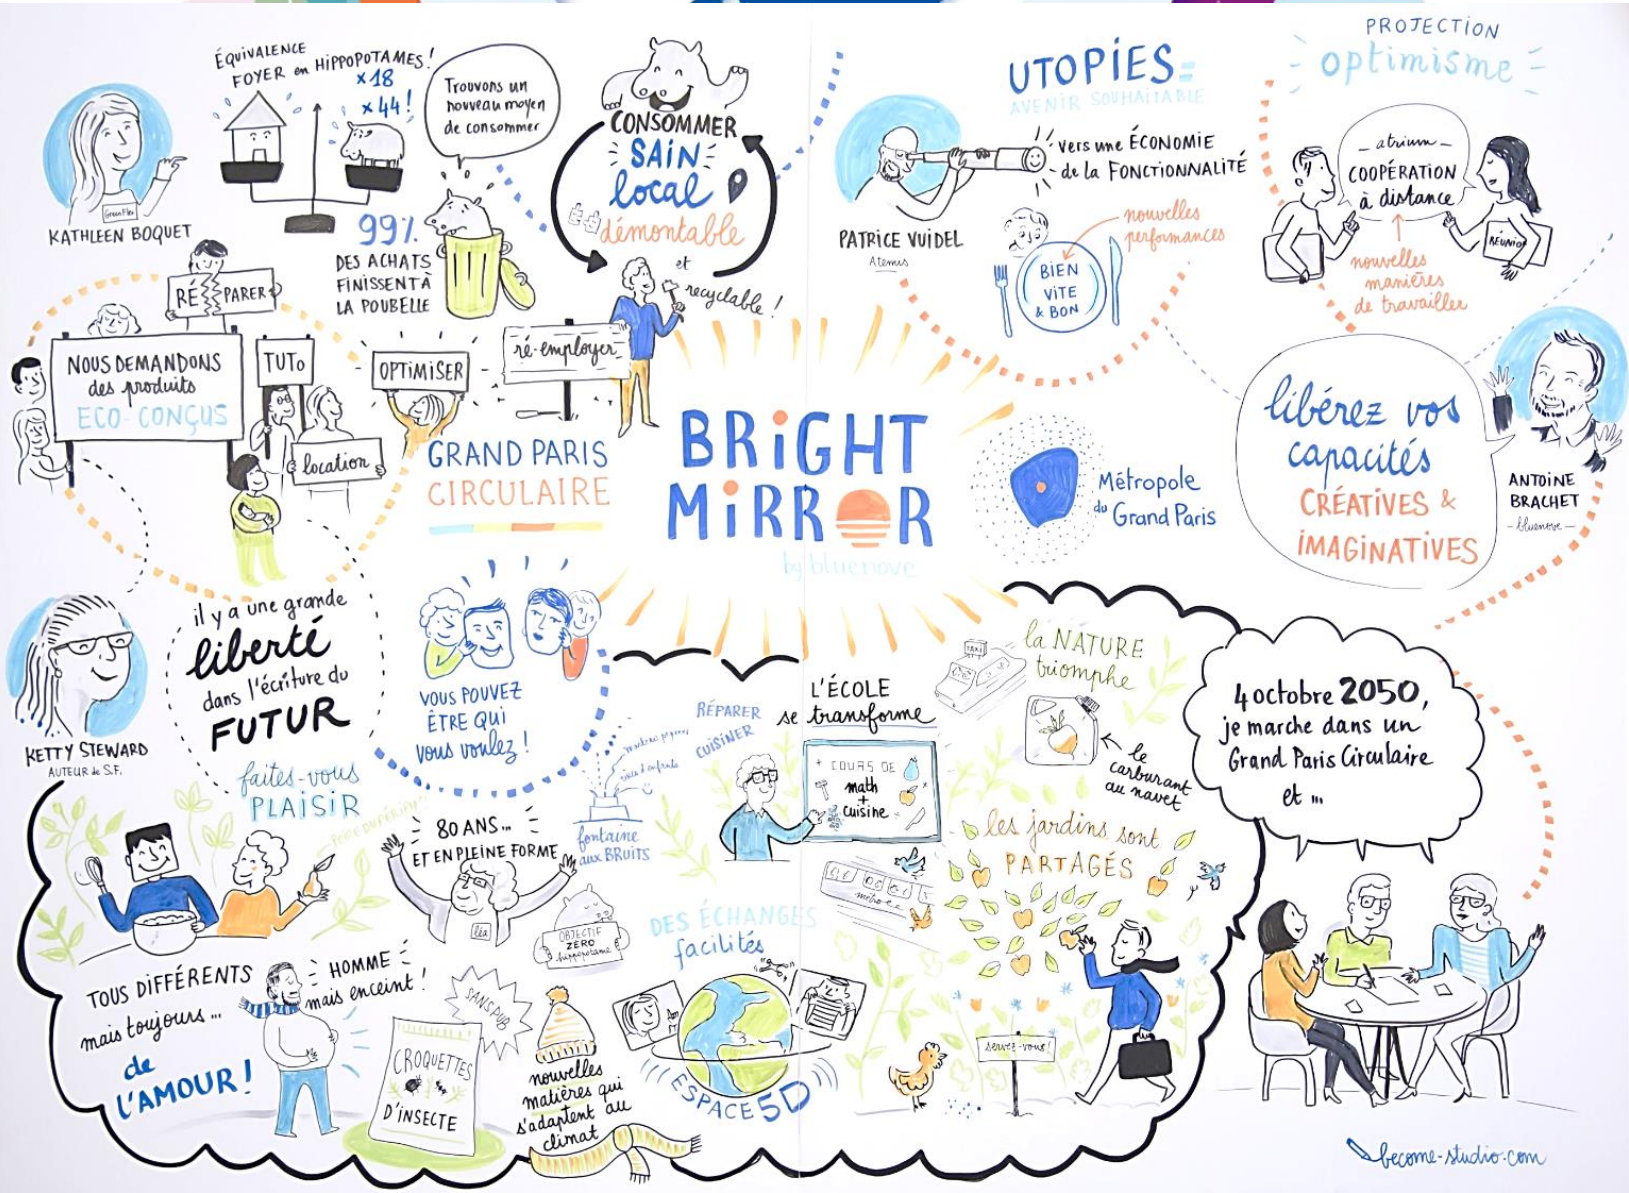 ÉQUIVALENCE
FOYER en HIPPOPOTAMES!
x18
x44!
GreenFlex
KATHLEEN BOQUET
Trouvons un
nouveau moyen
de consommer
99%
DES ACHATS
FINISSENT À
LA POUBELLE
CONSOMMER
SAIN
local
démontable
et
recyclable !
RÉ PARER
NOUS DEMANDONS
des produits
ECO-CONÇUS
TUTO
location
OPTIMISER
ré-employer
GRAND PARIS
CIRCULAIRE
BRIGHT
MIRROR
by bluenove
UTOPIES
AVENIR SOUHAITABLE
PATRICE VUIDEL
Atemis
Vers une ÉCONOMIE
de la FONCTIONNALITÉ
nouvelles
performances
BIEN
VITE
& BON
PROJECTION
optimisme
atrium
COOPÉRATION
à distance
RÉUNIO
nouvelles
manières
de travailler
Métropole
du Grand Paris
libérez vos
capacités
CRÉATIVES &
IMAGINATIVES
ANTOINE
BRACHET
- bluenove -
KETTY STEWARD
AUTEUR de S.F.
il y a une grande
liberté
dans l'écriture du
FUTUR
faites-vous
PLAISIR
VOUS POUVEZ
ÊTRE QUI
vous voulez !
80 ANS...
ET EN PLEINE FORME
léa
fontaine
aux BRUITS
OBJECTIF
ZÉRO
hippopotame
RÉPARER
CUISINER
L'ÉCOLE
se transforme
+ COURS DE
math
+
cuisine
TAXI
la NATURE
triomphe
le
carburant
au navet
les jardins sont
PARTAGÉS
servez-vous!
DES ÉCHANGES
facilités
ESPACE 5D
TOUS DIFFÉRENTS
mais toujours...
de
L'AMOUR !
HOMME
mais enceint !
SANS PUB
CROQUETTES
D'INSECTE
nouvelles
matières qui
s'adaptent au
climat
4 octobre 2050,
je marche dans un
Grand Paris Circulaire
et ...
become-studio.com